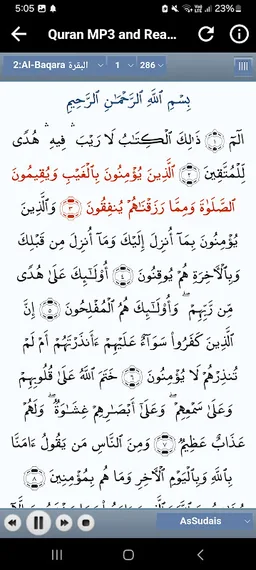 5:05 23%
Quran MP3 and Rea...
2:Al-Baqara البقرة 1 286
بِسْمِ ٱللَّهِ ٱلرَّحْمَـٰنِ ٱلرَّحِيمِ
الٓمٓ ﴿١﴾ ذَٰلِكَ ٱلْكِتَـٰبُ لَا رَيْبَ ۛ فِيهِ ۛ هُدًى
لِّلْمُتَّقِينَ ﴿٢﴾ ٱلَّذِينَ يُؤْمِنُونَ بِٱلْغَيْبِ وَيُقِيمُونَ
ٱلصَّلَوٰةَ وَمِمَّا رَزَقْنَـٰهُمْ يُنفِقُونَ ﴿٣﴾ وَٱلَّذِينَ
يُؤْمِنُونَ بِمَآ أُنزِلَ إِلَيْكَ وَمَآ أُنزِلَ مِن قَبْلِكَ
وَبِٱلْـَٔاخِرَةِ هُمْ يُوقِنُونَ ﴿٤﴾ أُو۟لَـٰٓئِكَ عَلَىٰ هُدًى
مِّن رَّبِّهِمْ ۖ وَأُو۟لَـٰٓئِكَ هُمُ ٱلْمُفْلِحُونَ ﴿٥﴾ إِنَّ
ٱلَّذِينَ كَفَرُوا۟ سَوَآءٌ عَلَيْهِمْ ءَأَنذَرْتَهُمْ أَمْ لَمْ
تُنذِرْهُمْ لَا يُؤْمِنُونَ ﴿٦﴾ خَتَمَ ٱللَّهُ عَلَىٰ قُلُوبِهِمْ
وَعَلَىٰ سَمْعِهِمْ ۖ وَعَلَىٰٓ أَبْصَـٰرِهِمْ غِشَـٰوَةٌ ۖ وَلَهُمْ
عَذَابٌ عَظِيمٌ ﴿٧﴾ وَمِنَ ٱلنَّاسِ مَن يَقُولُ ءَامَنَّا
بِٱللَّهِ وَبِٱلْيَوْمِ ٱلْـَٔاخِرِ وَمَا هُم بِمُؤْمِنِينَ ﴿٨﴾
AsSudais